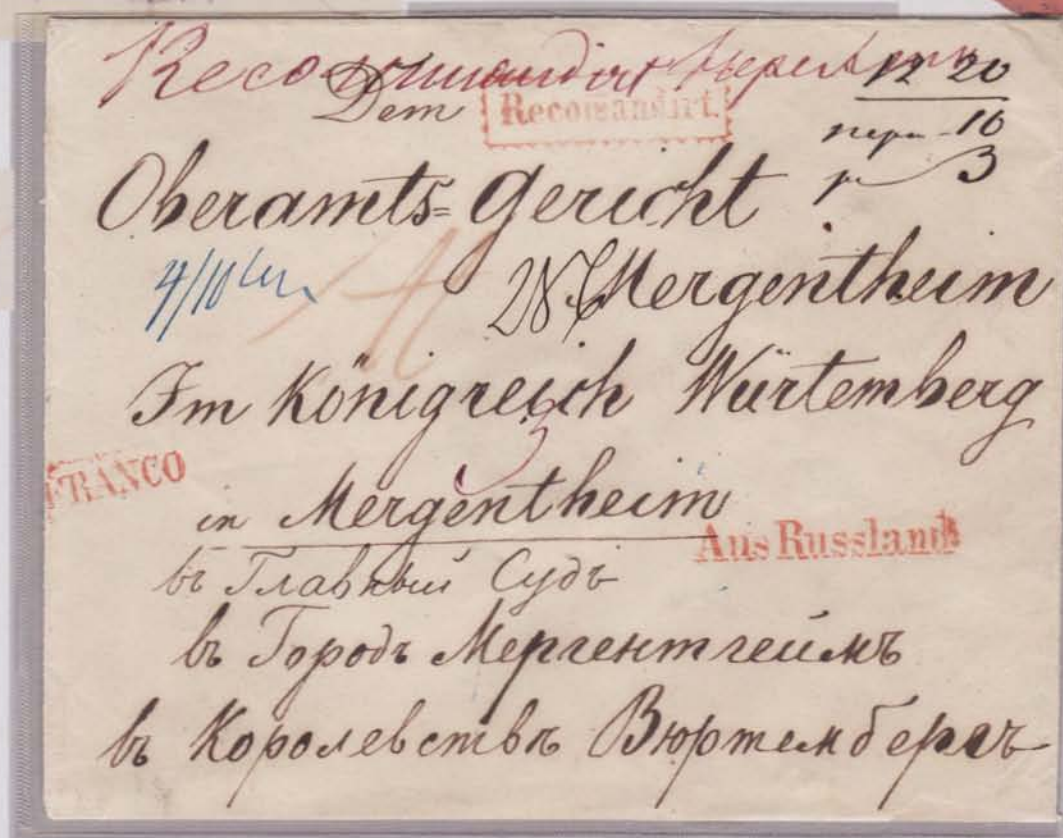 Recommandirt
12 20
Dem Recomandirt.
16
3
Oberamts=Gericht
4/10
Mergentheim
Im Königreich Würtemberg
3
FRANCO
in Mergentheim
Aus Russland
въ Главный Судъ
въ Городъ Мергентгеимъ
въ Королевствѣ Вюртембергъ